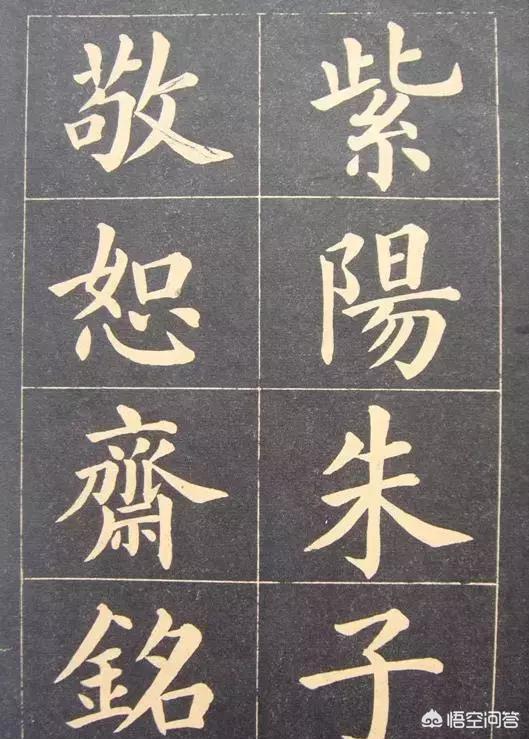 紫陽朱子
敬恕齋銘
悟空问答